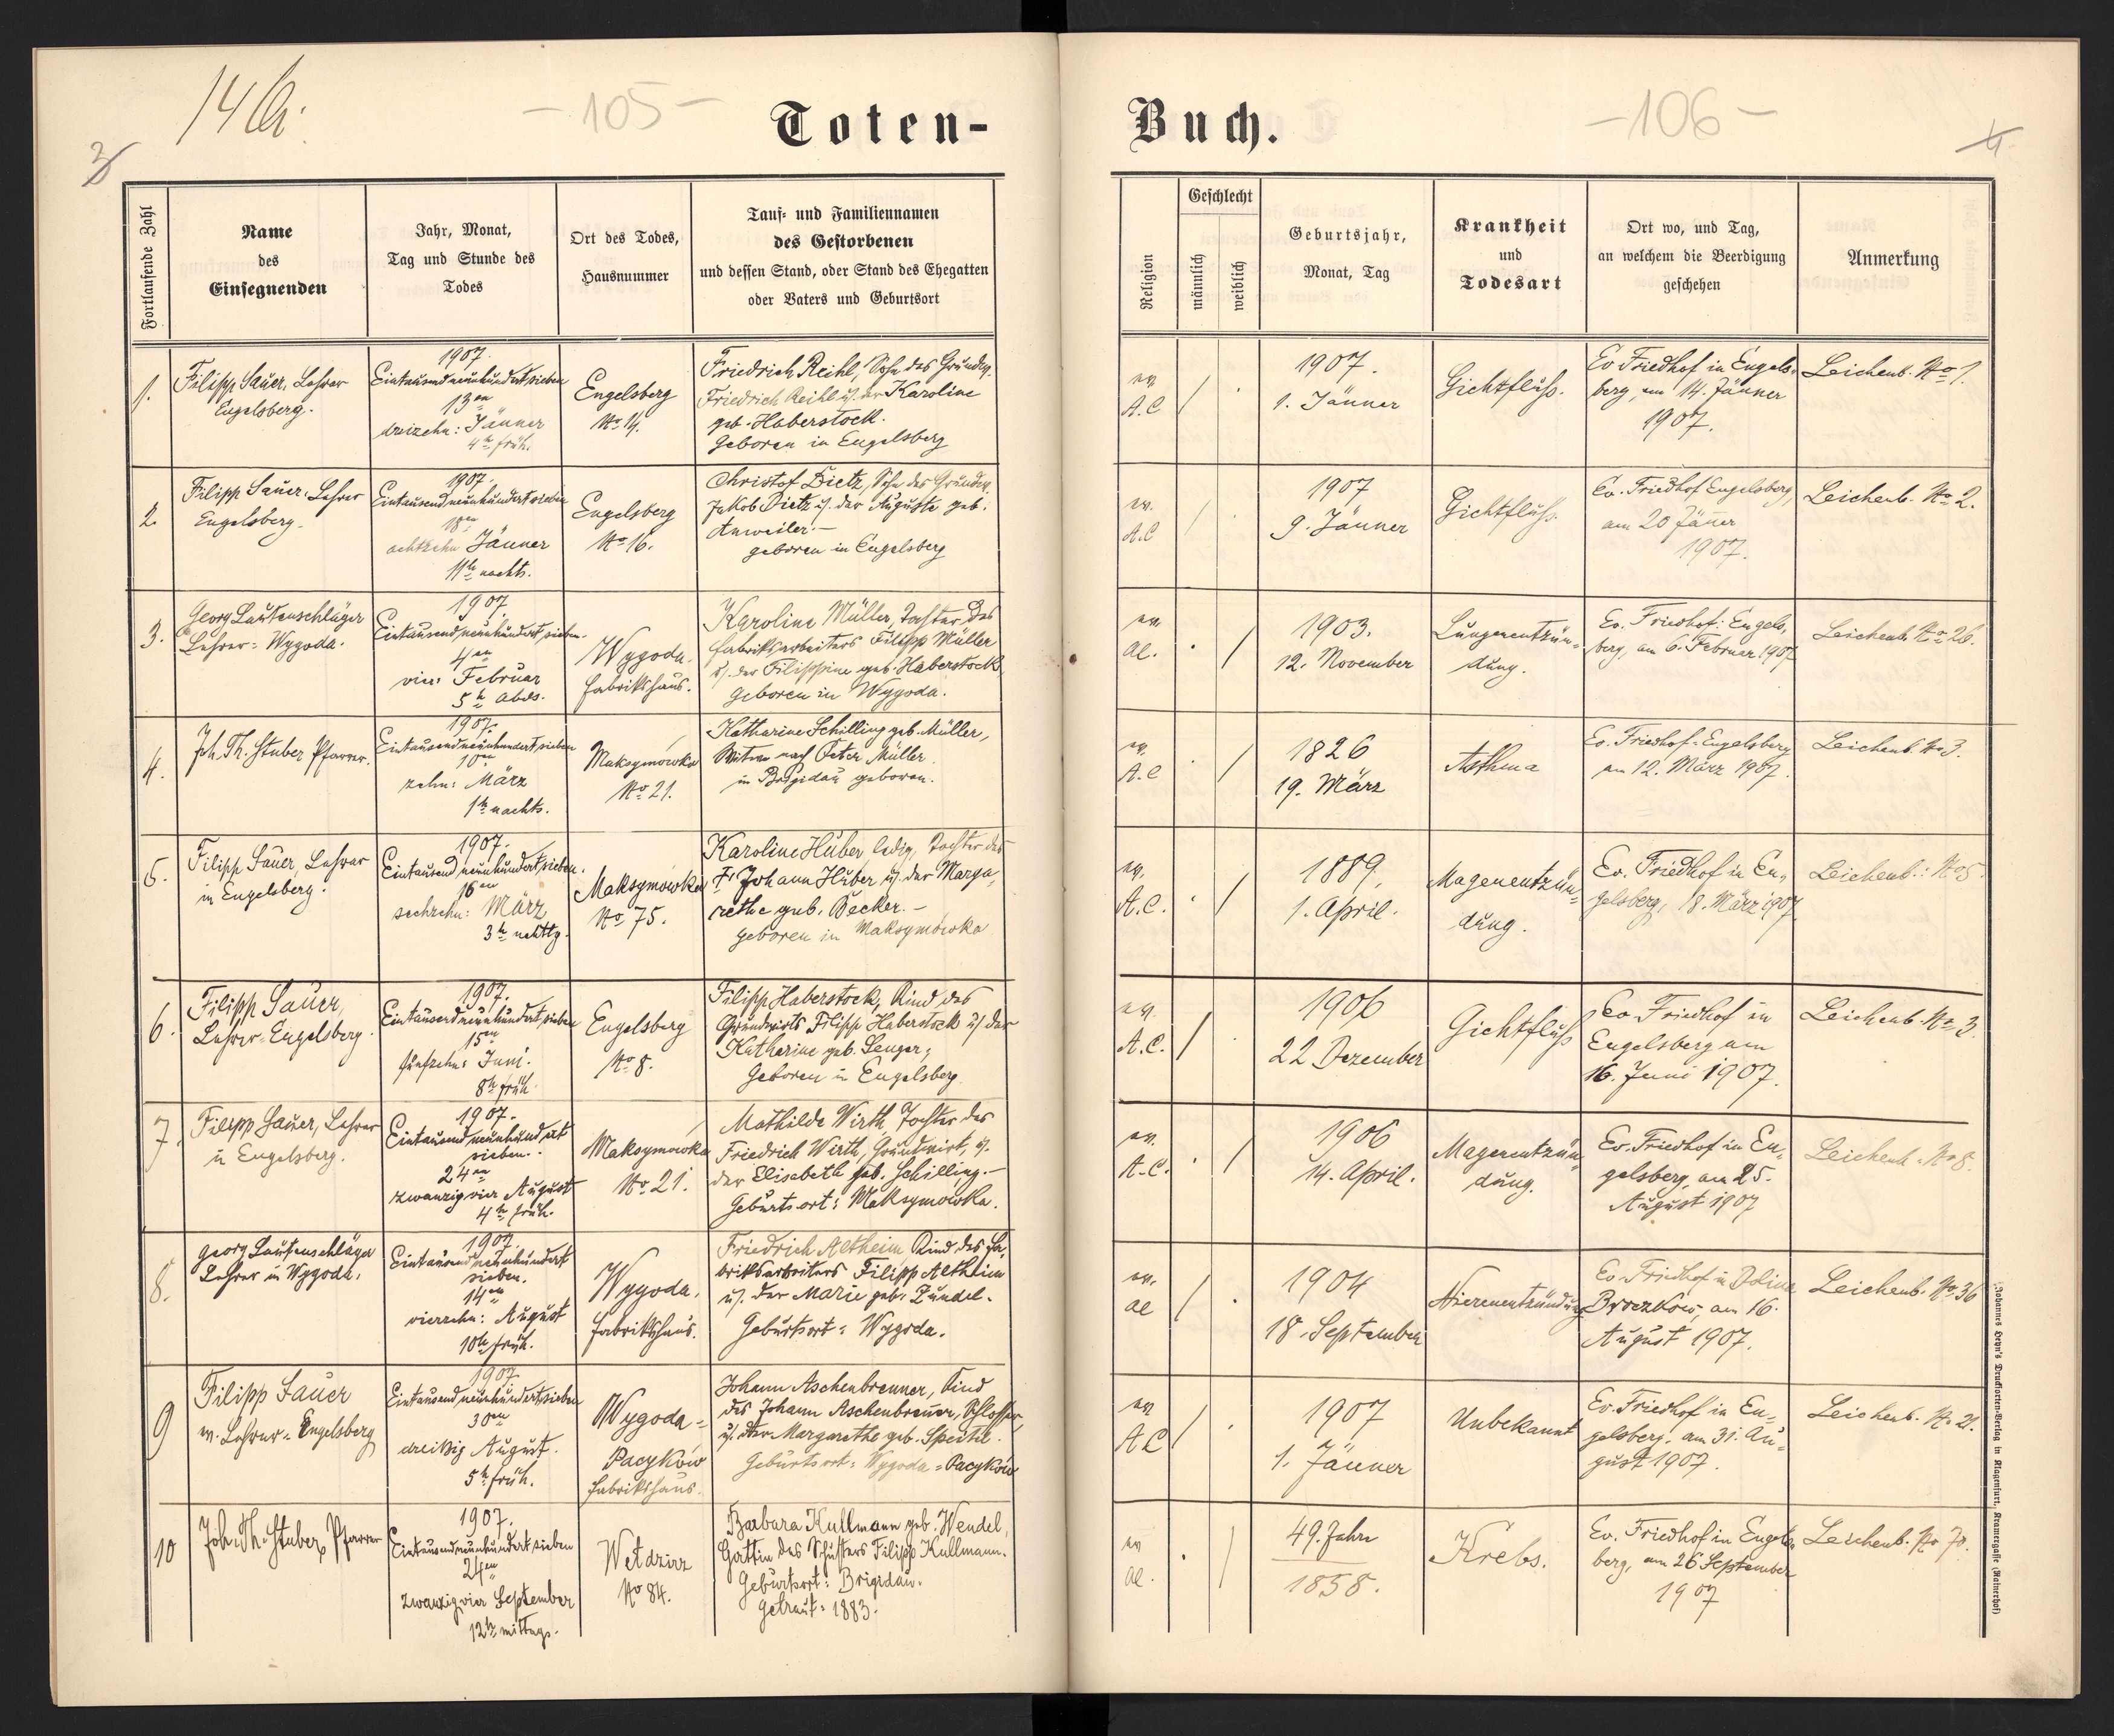 14 Ch.
- 105 -
Toten-
Buch.
- 106 -
3
4
Fortlaufende Zahl
Name
des
Einsegnenden
Jahr, Monat,
Tag und Stunde des
Todes
Ort des Todes,
Hausnummer
Tauf- und Familiennamen
des Gestorbenen
und dessen Stand, oder Stand des Ehegatten
oder Vaters und Geburtsort
Religion
Geschlecht
männlich
weiblich
Geburtsjahr,
Monat, Tag
Krankheit
und
Todesart
Ort wo, und Tag,
an welchem die Beerdigung
geschehen
Anmerkung
1.
Filipp Sauer, Lehrer
Engelsberg.
1907.
Eintausendneunhundertsieben
13en
dreizehn: Jänner
4h früh.
Engelsberg
No 14.
Friedrich Reihl, Sohn des Grundw.
Friedrich Reihl u. der Karoline
geb. Haberstock.
Geboren in Engelsberg
ev.
A.C
/ .
1907.
1. Jänner
Gichtfluss.
Ev Friedhof in Engels-
berg, am 14. Jänner
1907.
Leichenb. No 1.
2.
Filipp Sauer, Lehrer
Engelsberg.
1907.
Eintausendneunhundertsieben
18en
achtzehn Jänner
11h nachts.
Engelsberg
No 16.
Christof Dietz, Sohn des Grundw.
Jakob Dietz u. der Auguste geb.
Anweiler. -
geboren in Engelsberg
ev.
A.C
/ .
1907
9. Jänner
Gichtfluss.
Ev. Friedhof Engelsberg,
am 20 Jänner
1907.
Leichenb. No 2.
3.
Georg Lautenschläger
Lehrer = Wygoda.
1907
Eintausendneunhundertsieben.
4en
vier: Februar
5h Abds.
Wygoda.
Fabrikshaus.
Karoline Müller, Tochter des
Fabriksarbeiters Filipp Müller
u. der Filippine geb. Haberstock,
Geboren in Wygoda.
ev.
ac.
. /
1903.
12. November
Lungenentzün-
dung.
Ev. Friedhof: Engels-
berg, am 6. Februar 1907
Leichenb. No 26.
4.
Joh. Th. Stuber Pfarrer.
1907.
Eintausendneunhundertsieben
10en
zehn: März
1h nachts.
Maksymówka
No 21.
Katharine Schilling geb. Müller,
Witwe nach Peter Müller
in Brigidau geboren.
ev.
A.C
. /
1826
19. März
Asthma
Ev. Friedhof: Engelsberg
am 12. März 1907.
Leichenb. No 3.
5.
Filipp Sauer, Lehrer
in Engelsberg.
1907.
Eintausendneunhundertsieben.
16en
sechzehn: März
3h nchttg.
Maksymówka
No 75.
Karoline Huber, ledig, Tochter des
Johann Huber u. der Marga-
rethe geb. Becker. -
geboren in Maksymówka
ev.
A.C.
. /
1889.
1. April.
Magenentzün-
dung.
Ev. Friedhof in En-
gelsberg, 18. März 1907
Leichenb.: No 5
6.
Filipp Sauer,
Lehrer-Engelsberg.
1907.
Eintausendneunhundertsieben
15en
fünfzehn: Juni.
8h früh
Engelsberg
No 8.
Filipp Haberstock, Kind des
Grundwirts Filipp Haberstock u. der
Katharine geb. Senger,
Geboren in Engelsberg.
ev.
A.C.
/ .
1906
22 Dezember
Gichtfluss
Ev. Friedhof in
Engelsberg am
16. Juni 1907.
Leichenb. No 3
7.
Filipp Sauer, Lehrer
in Engelsberg.
1907.
Eintausendneunhundert
sieben.
24en
zwanzigvier August
4h früh.
Maksymówka
No 21.
Mathilde Wirth, Tochter des
Friedrich Wirth, Grundwirt, u.
der Elisabeth geb. Schilling. -
Geburtsort: Maksymówka.
ev.
A.C.
. /
1906
14. April.
Magenentzün-
dung.
Ev. Friedhof in En-
gelsberg, am 25.
August 1907
Leichenb. No 8.
8.
Georg Lautenschläger
Lehrer in Wygoda.
1907.
Eintausendneunhundert
sieben.
14en
vierzehn: August
10h früh.
Wygoda.
Fabrikshaus.
Friedrich Altheim Kind des Fa-
briksarbeiters Filipp Altheim
u. der Marie geb. Zundel.
Geburtsort: Wygoda.
ev.
ac
/ .
1904
18 September
Nierenentzündung
Ev. Friedhof in Dolina
Broczków, am 16.
August 1907.
Leichenb. No 36
9
Filipp Sauer
ev. Lehrer = Engelsberg
1907.
Eintausendneunhundertsieben
30en
dreißig August.
5h früh.
Wygoda =
Pacyków
Fabrikshaus.
Johann Aschenbrenner, Kind
des Johann Aschenbrenner, Schlosser,
u. der Margarethe geb. Spechl.
Geburtsort: Wygoda = Pacyków
ev
AC
/ .
1907
1. Jänner
Unbekannt
Ev. Friedhof in En-
gelsberg, am 31. Au-
gust 1907.
Leichenb. No 21.
10
Joh. Th. Stuber, Pfarrer
1907.
Eintausendneunhundertsieben
24en
zwanzigvier September
12h mittags.
Wełdzirz
No 84.
Barbara Kullmann geb. Wendel,
Gattin des Schusters Filipp Kullmann.
Geburtsort: Brigidau.
Getraut: 1883.
ev
ac.
. /
49. Jahre
1858.
Krebs.
Ev. Friedhof in Engels-
berg, am 26 September
1907
Leichenb. No 70.
(Johannes Heyn's Drucksorten-Verlag in Klagenfurt, Kramergasse (Rainerhof)